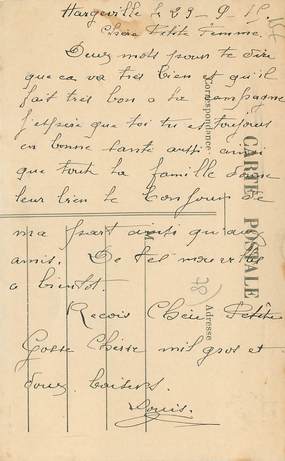 Hargeville le 29-9-15
Chère Petite Femme.
Deux mots pour te dire
que ca va très bien et qu'il
fait très bon a la campagne
j'espère que toi tu es toujours
en bonne santé aussi ainsi
que toute la famille donne
leur bien le bonjour de
ma part ainsi qu'aux
amis. De tel nouvelles
a bientôt.
Recois Chère Petite
Gosse Chérie mil gros et
doux baisers.
Louis.
CARTE POSTALE
Correspondance
Adresse